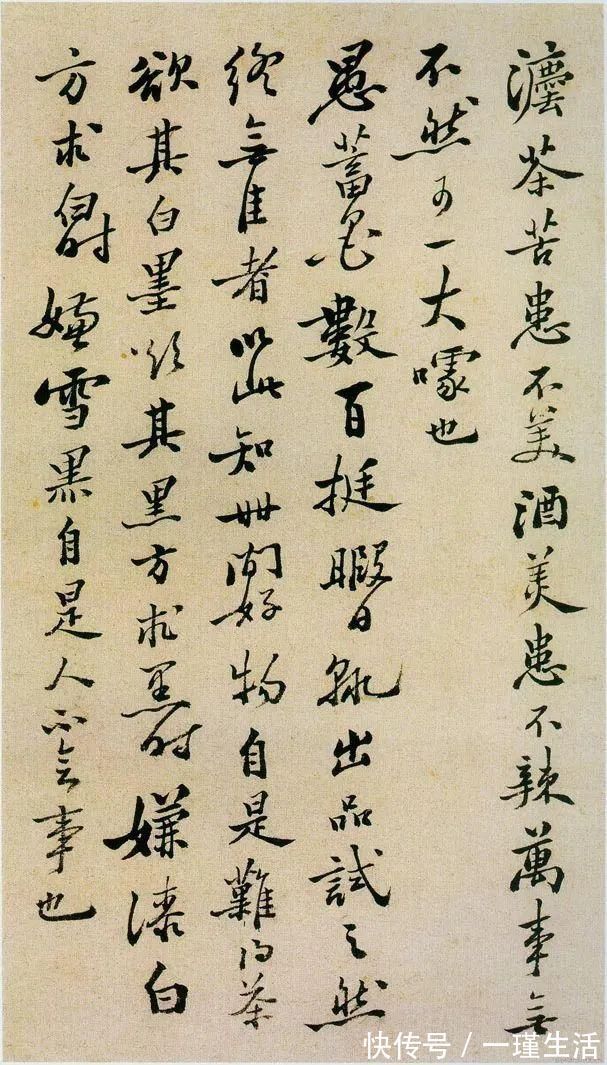 灋茶苦患不美酒美患不辣萬事無
不然可一大噱也
愚蓄墨數百挺暇日輒出品試之然
終無佳者以此知世間好物自是難得茶
欲其白墨欲其黑方求黑時嫌漆白
方求白時嫌雪黑自是人不會事也
快传号/一瑾生活